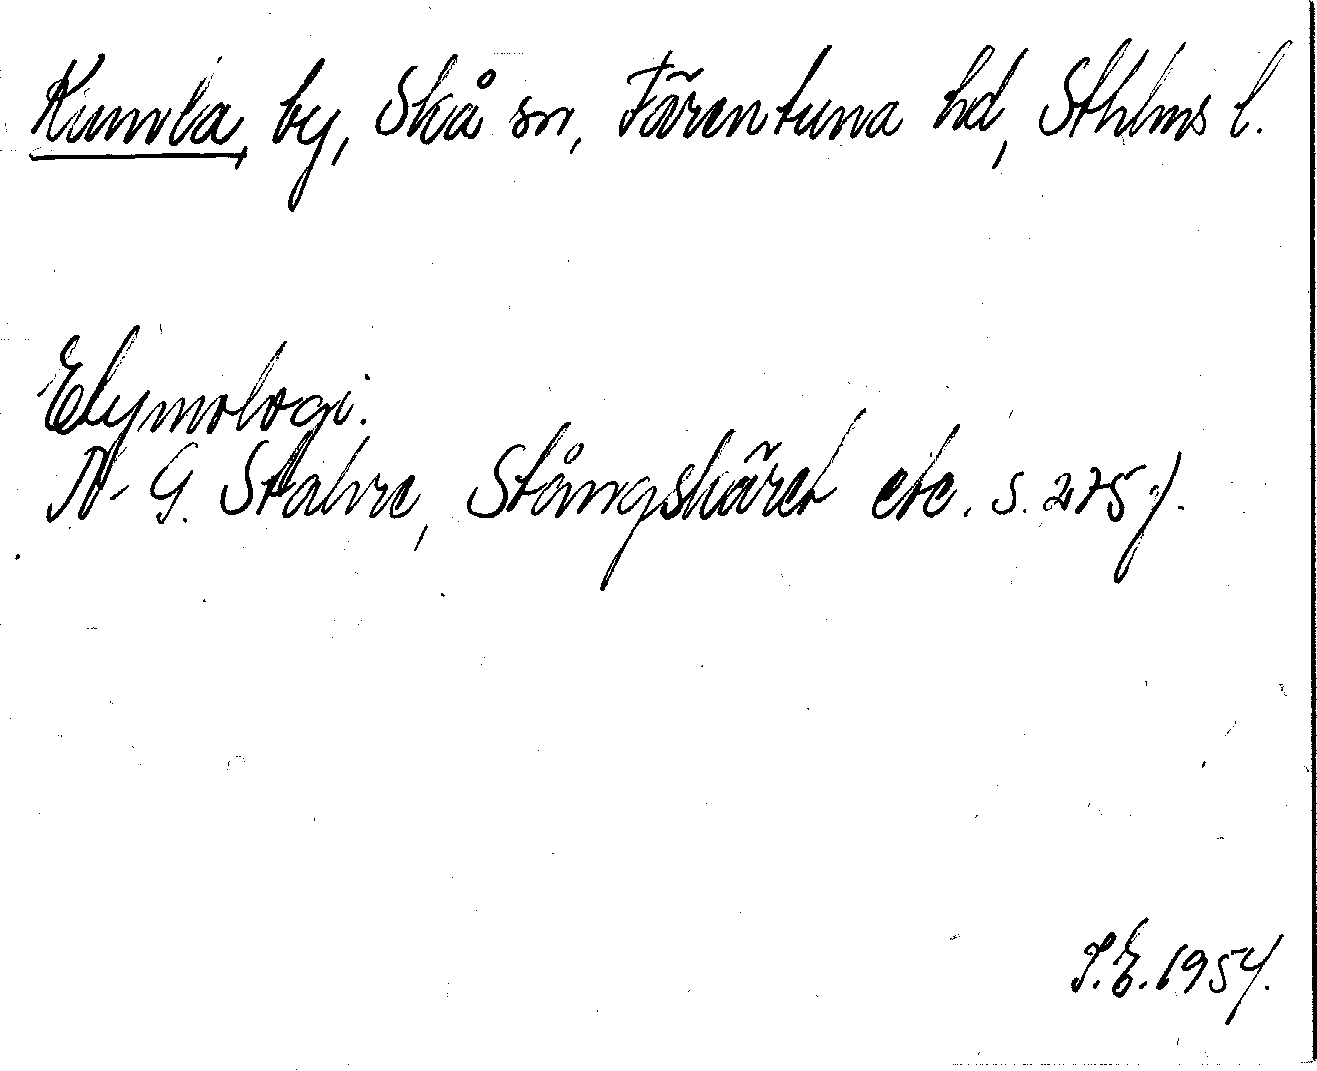 Kumla, by, Skå sn, Färentuna hd, Sthlms l.
Etymologi.
N-G. Stahre, Stångskäret etc. s. 275 f.
S.E. 1954.